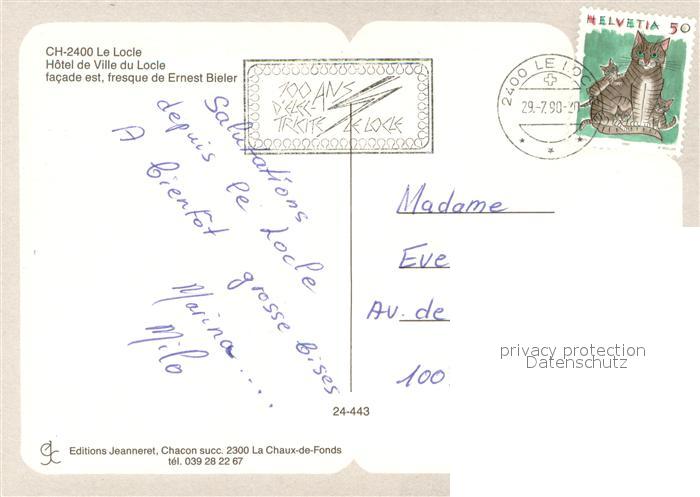 CH-2400 Le Locle
Hôtel de Ville du Locle
façade est, fresque de Ernest Bieler
100 ANS
D'ÉLEC-
TRICITÉ LE LOCLE
2400 LE LOCLE
29.-7.90-20
HELVETIA 50
Salutations
depuis le Locle
A bientot grosse bises
Marina....
Milo
Madame
Eve
Av. de
100
privacy protection
Datenschutz
24-443
Editions Jeanneret, Chacon succ. 2300 La Chaux-de-Fonds
tél. 039 28 22 67